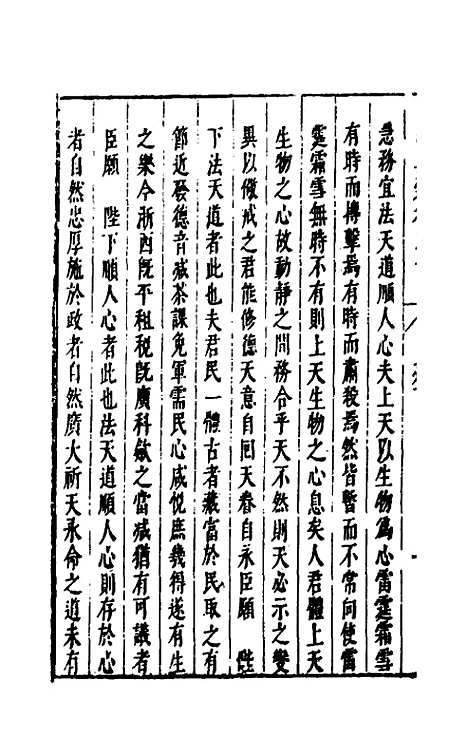 急務宜法天道順人心夫上天以生物爲心雷霆霜雪
有時而搏擊焉有時而肅殺焉然皆暫而不常向使雷
霆霜雪無時不有則上天生物之心息矣人君體上天
生物之心故動静之間務合乎天不然則天必示之變
異以儆戒之君能修德天意自回天眷自永臣願　陛
下法天道者此也夫君民一體古者藏富於民取之有
節近發德音减茶課免軍需民心咸悅庶幾得遂有生
之樂今浙西旣平租稅旣廣科歛之當减猶有可議者
臣願　陛下順人心者此也法天道順人心則存於心
者自然忠厚施於政者自然廣大祈天永命之道未有